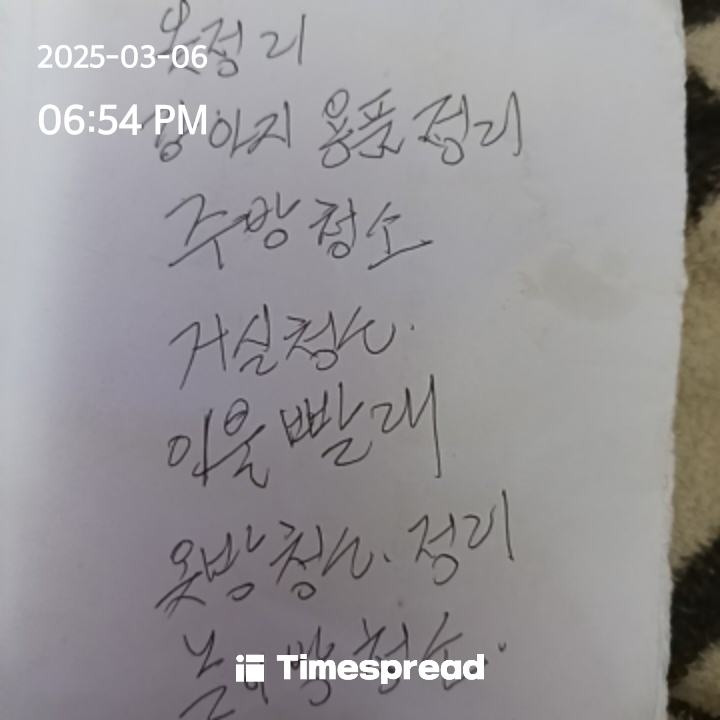 옷정리
2025-03-06
강아지 용품 정리
06:54 PM
주방 청소
거실 청소.
이불 빨래
옷방 청소. 정리
청소.
Timespread